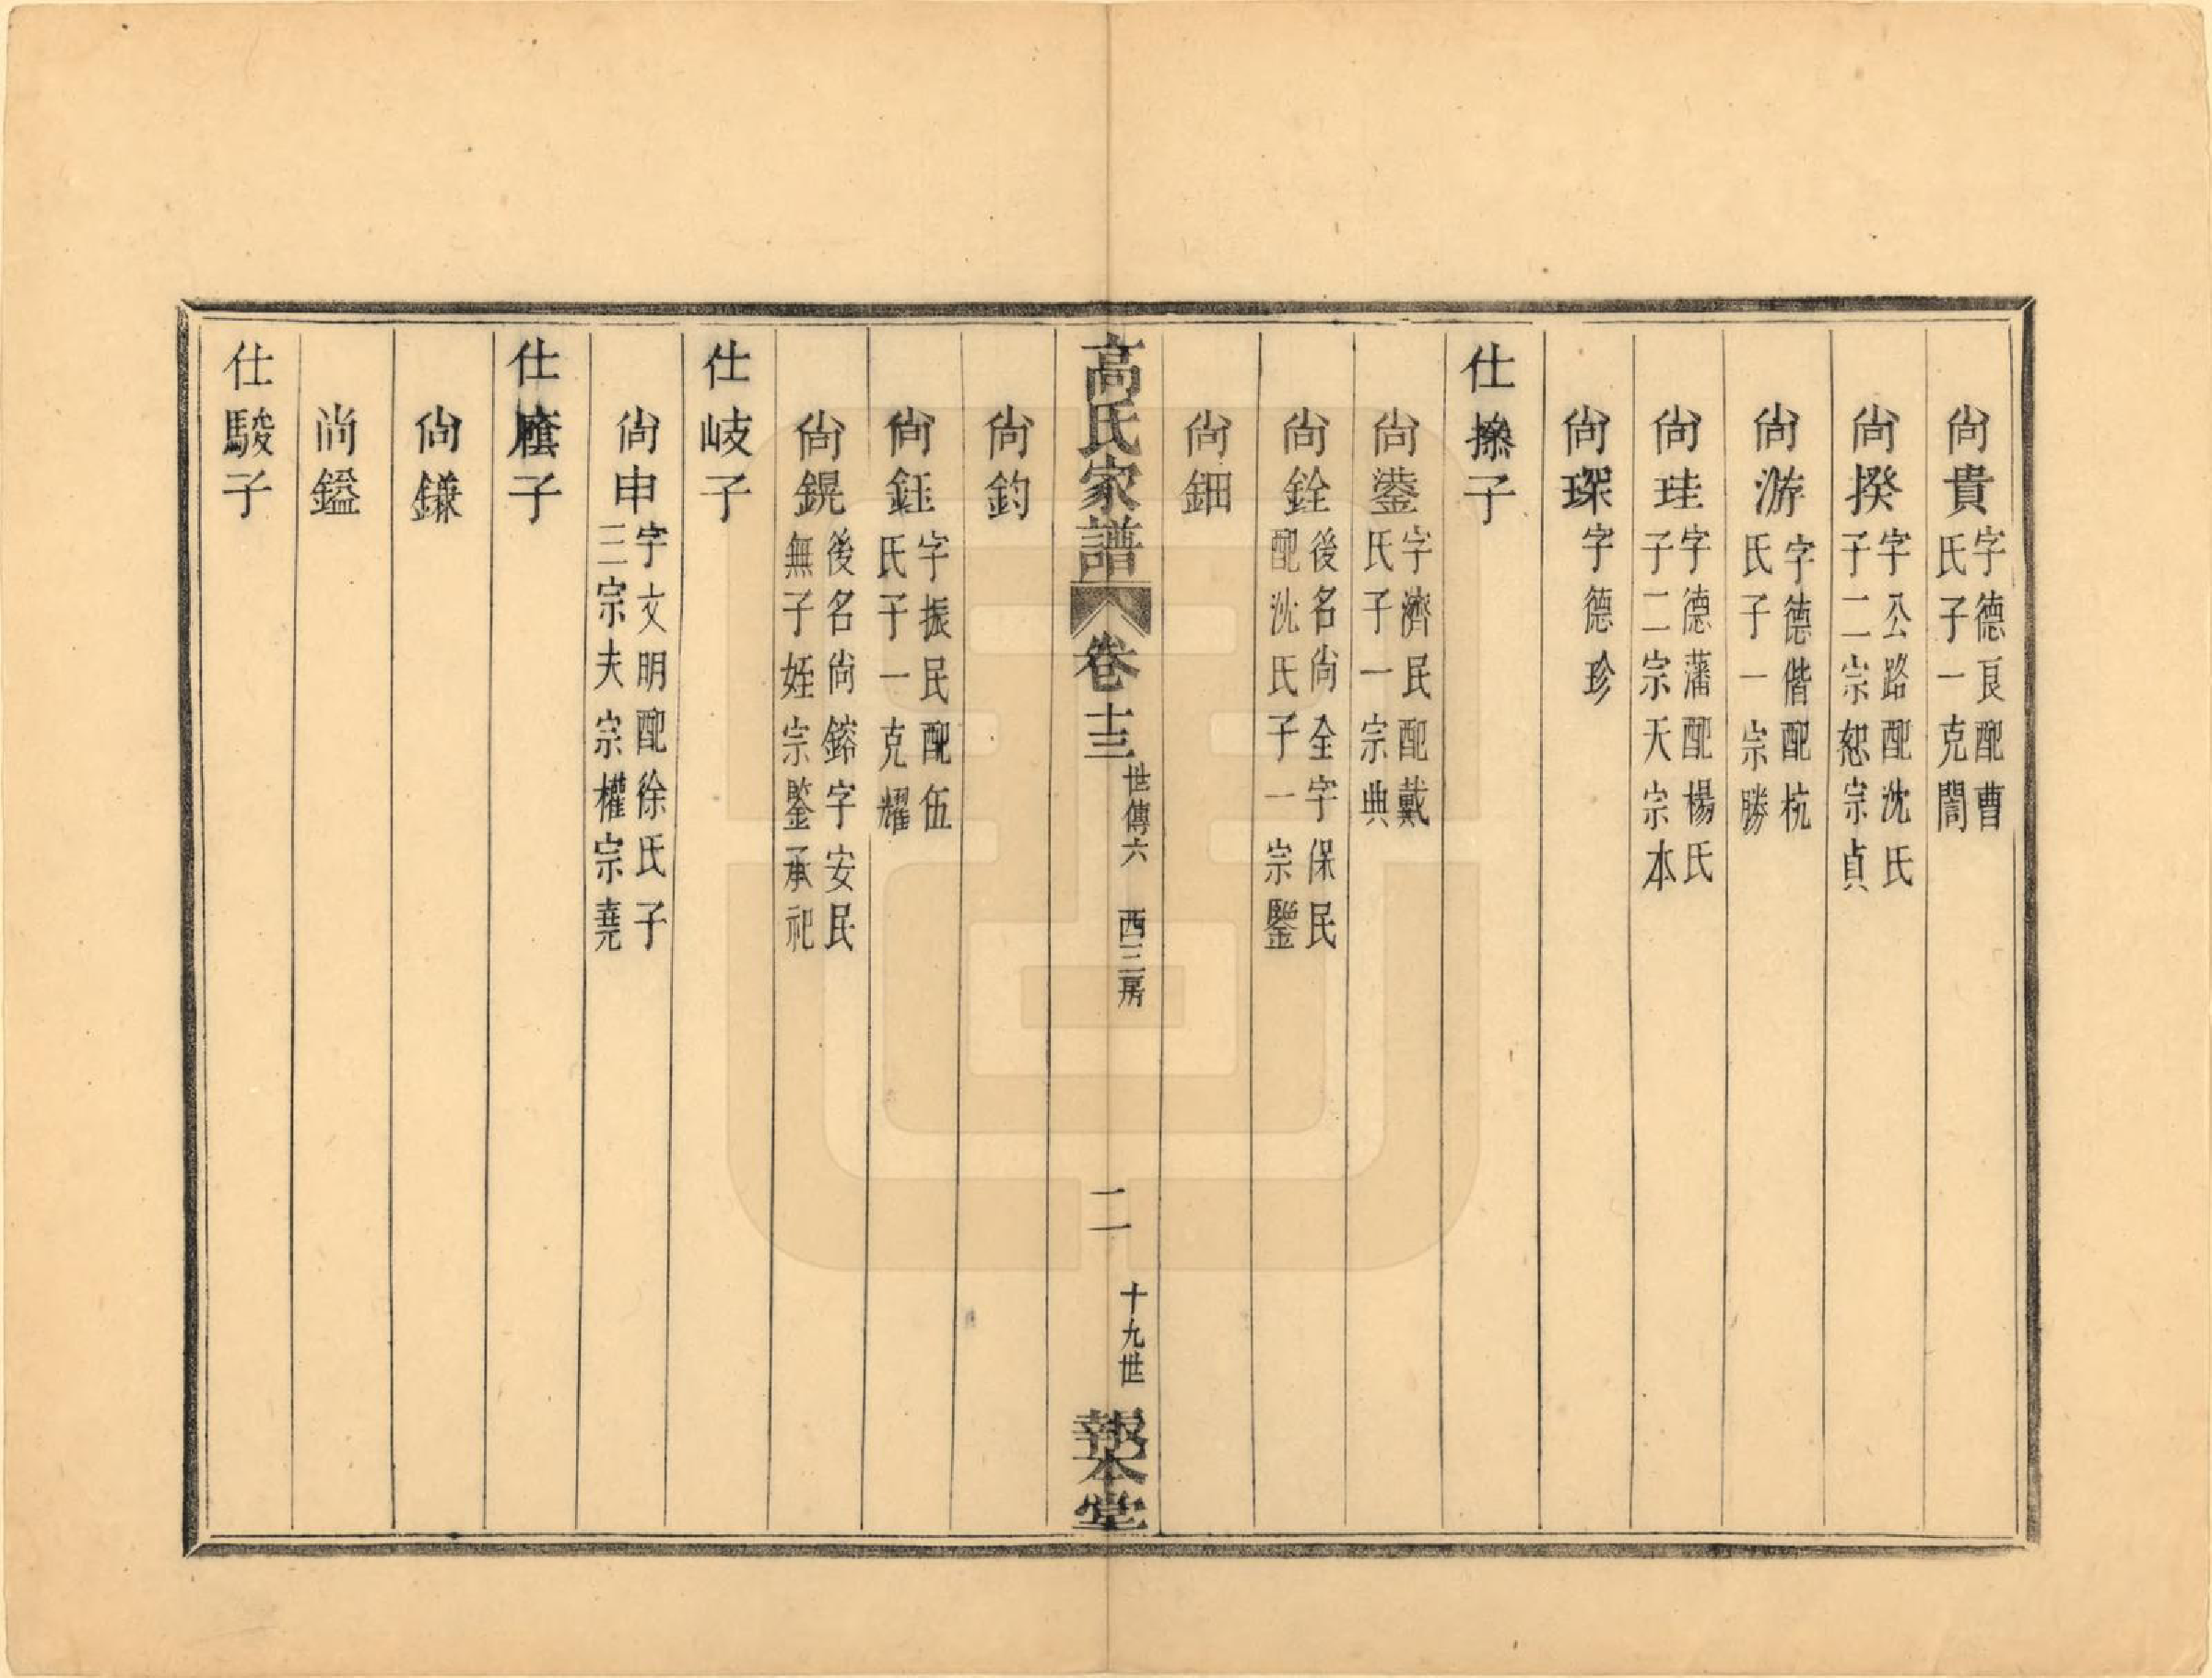 尙貴 字德良配曹氏子一克誾
尙揆 字公路配沈氏子二宗恕宗貞
尙游 字德偕配杭氏子一宗勝
尙珪 字德藩配楊氏子二宗天宗本
尙琛 字德珍
仕
子
尙鍙 字濟民配戴氏子一宗典
尙銓 後名尙全字保民配沈氏子一宗鑒
尙鈿
高氏家譜 卷十三 世傳六 西三房 二 十九世 報本堂
尙鈞
尙鈺 字振民配伍氏子一克耀
尙鎤 後名尙鎔字安民無子姪宗鍳承祀
仕岐子
尙申 字文明配徐氏子三宗夫宗權宗堯
仕䕃子
尙鎌
尙鎰
仕駿子